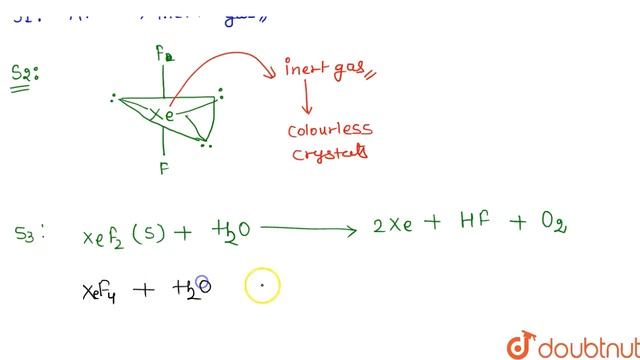 F
S2:
Xe
inert gas
colourless
crystals
F
S3: XeF2 (S) + H2O → 2Xe + HF + O2
XeF4 + H2O
doubtnut